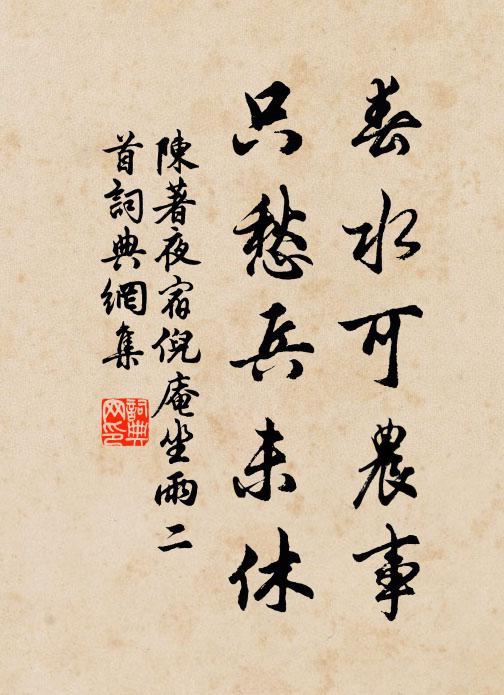 春水可農事
只愁兵未休
陳著夜宿倪庵坐雨二
首詞典網集
詞典网印